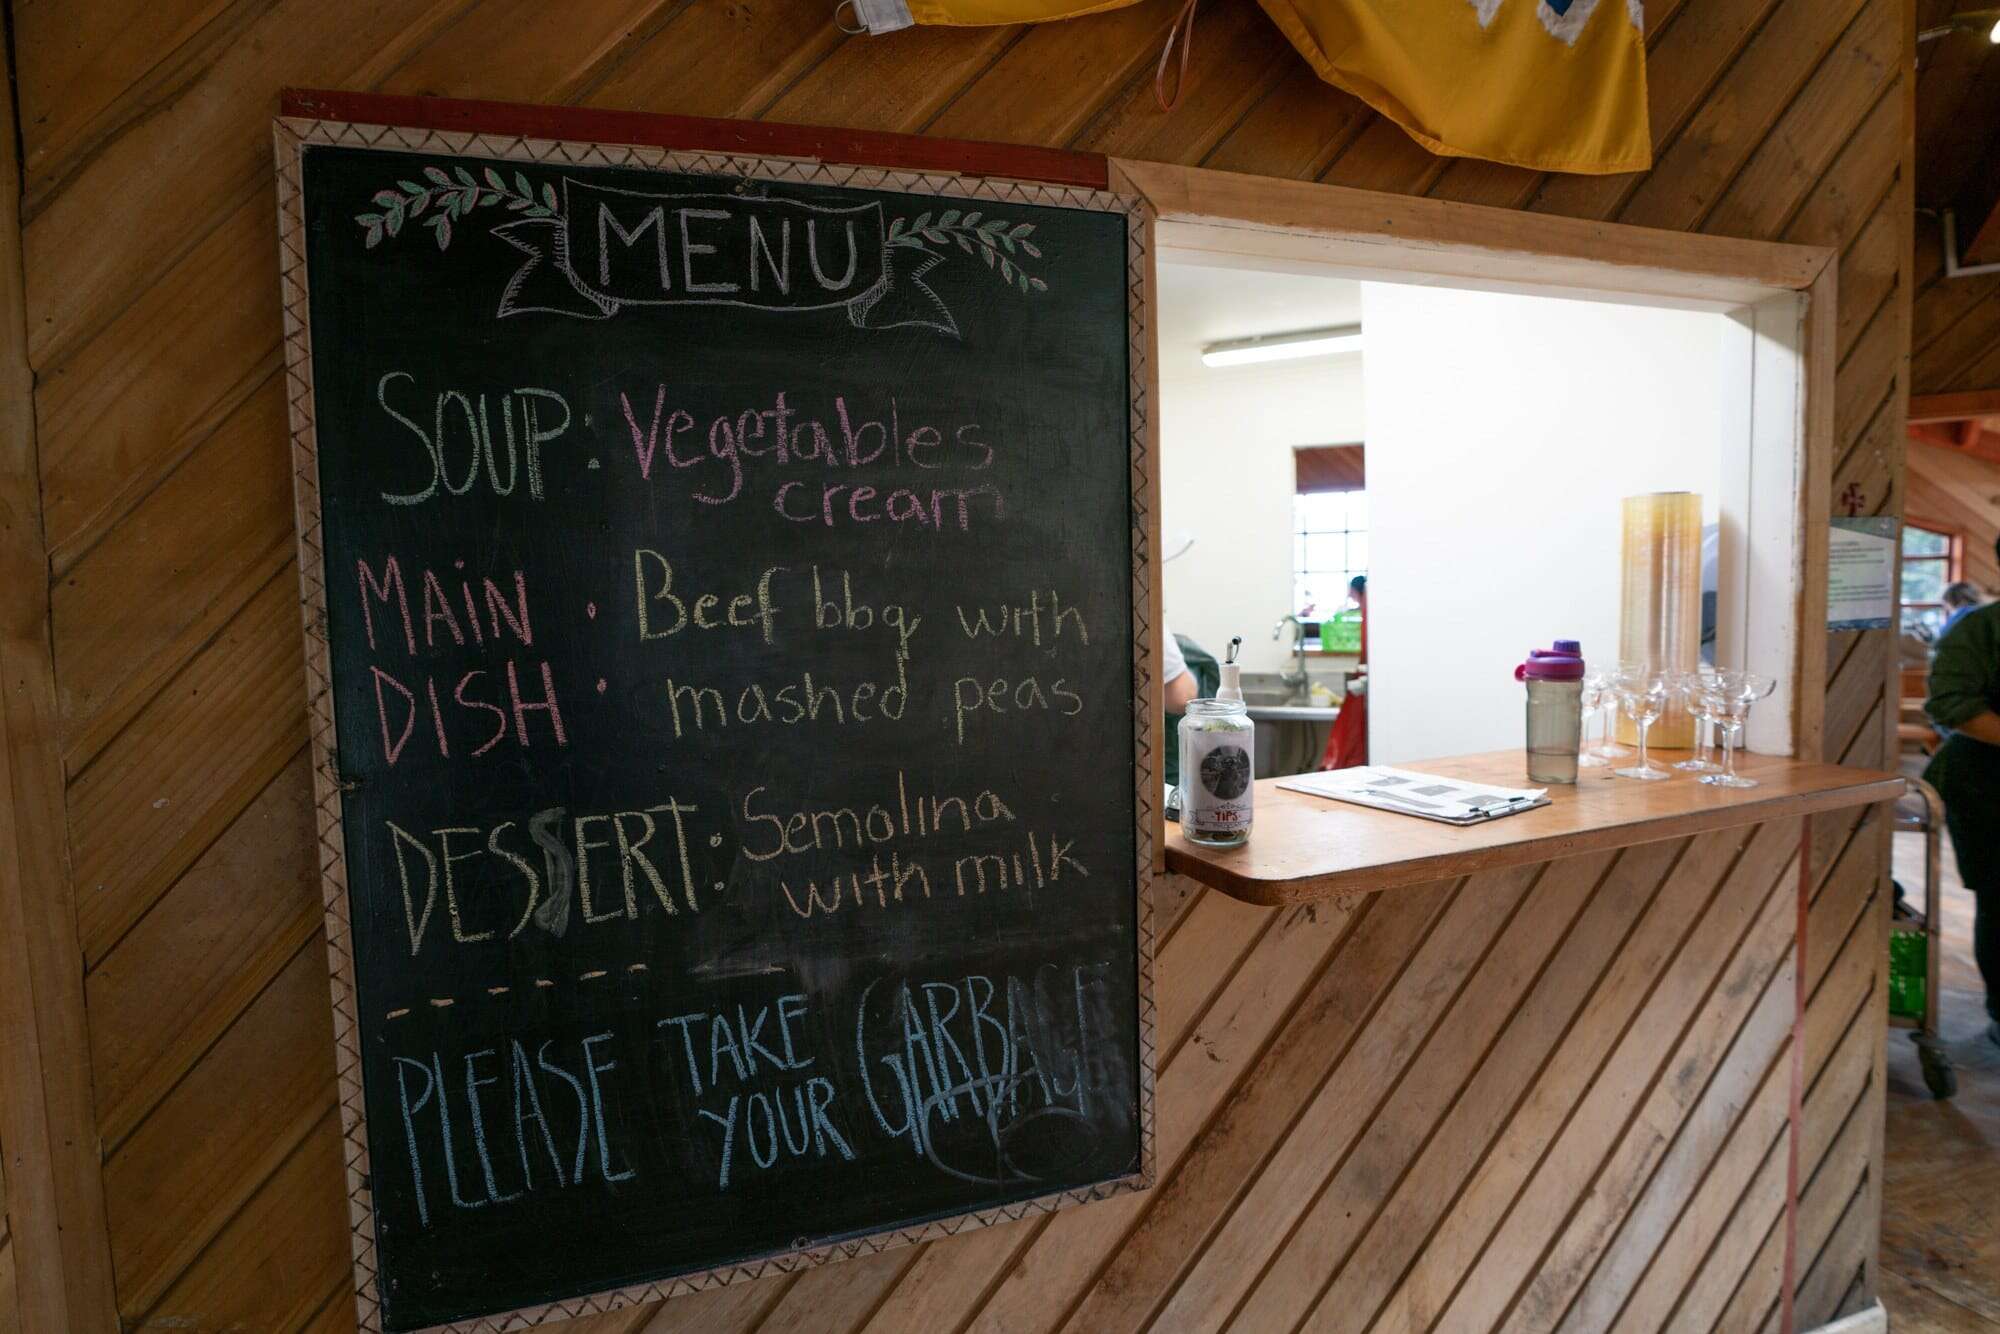 MENU
SOUP: Vegetables
cream
MAiN : Beef bbq with
DISH mashed peas
DESSERT: Semolina
with milk
PLEASE TAKE GARBAGE
YOUR
TIPS